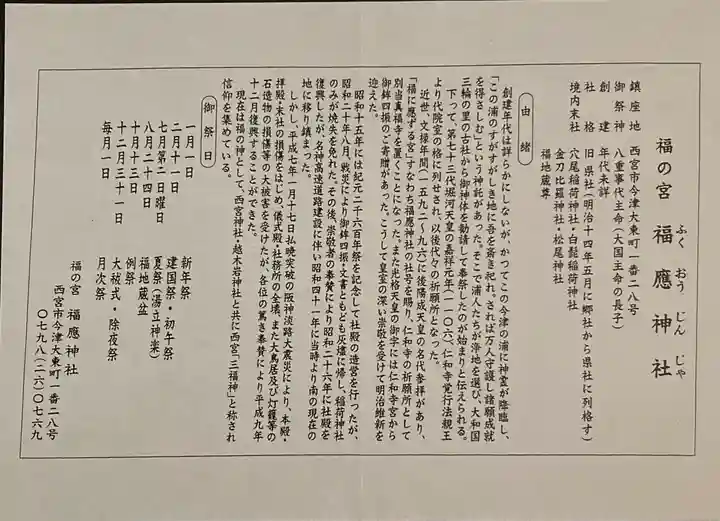 福の宮 福應神社
ふく おう じん じゃ
鎮座地 西宮市今津大東町一番二八号
御祭神 八重事代主命(大国主命の長子)
創建 年代未詳
社格 旧県社(明治十四年五月に郷社から県社に列格す)
境内末社 穴尾稲荷神社・白髭稲荷神社
金刀比羅神社・松尾神社
福地蔵尊
由緒
創建年代は詳らかにしないが、かつてこの今津の浦に神霊が降臨し、
「この浦のすがすがしき地に吾を斎き祀れ。されば万人守護し諸願成就
を得さしむ」という神託があった。そこで浦人たちが浄地を選び、大和国
三輪の里の古社から御神体を勧請して奉祭したのが始まりと伝えられる。
下って、第七十三代堀河天皇の嘉祥元年(一一〇六)、仁和寺覚行法親王
より代院室の格に列せされ、以後代々の祈願所となった。
近世、文禄年間(一五九二~九六)に後陽成天皇の名代参拝があり、
「福に應ずる宮」すなわち福應神社の社号を賜り、仁和寺の祈願所として
別当真福寺を置くことになった。また光格天皇の御字には仁和寺宮から
御鉾四振のご寄贈があった。こうして皇室の深い崇敬を受けて明治維新を
迎えた。
昭和十五年には紀元二千六百年祭を記念して社殿の造営を行ったが、
昭和二十年八月、戦災により御鉾四振・文書もともども灰燼に帰し、稲荷神社
のみが焼失を免れた。その後、崇敬者の奉賛により昭和二十六年に社殿を
復興したが、名神高速道路建設に伴い昭和四十一年に当時より南の現在の
地に移り鎮まった。
しかし、平成七年一月十七日払暁突破の阪神淡路大震災により、本殿・
拝殿・末社の損傷をはじめ、儀式殿・社務所の全壊、また大鳥居及び灯籠等の
石造物の損傷等の大被害を受けたが、各位の篤き奉賛により平成九年
十二月復興することができた。
現在は福の神として、西宮神社・越木岩神社と共に西宮「三福神」と称され
信仰を集めている。
御祭日
一月一日 新年祭
二月十一日 建国祭・初午祭
七月第二日曜日 夏祭(湯立神楽)
八月二十四日 福地蔵盆
十月十三日 例祭
十二月三十一日 大祓式・除夜祭
毎月一日 月次祭
福の宮 福應神社
西宮市今津大東町一番二八号
〇七九八(二六)〇七六九